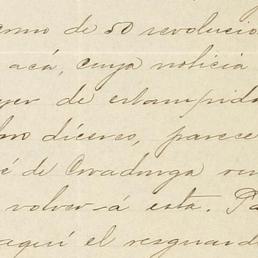 como de 50 revolucio
acá, cuya noticia
yer de estampida
díceres, parece
é de Ovadunga
volver á esta. Pa
aquí el resguard